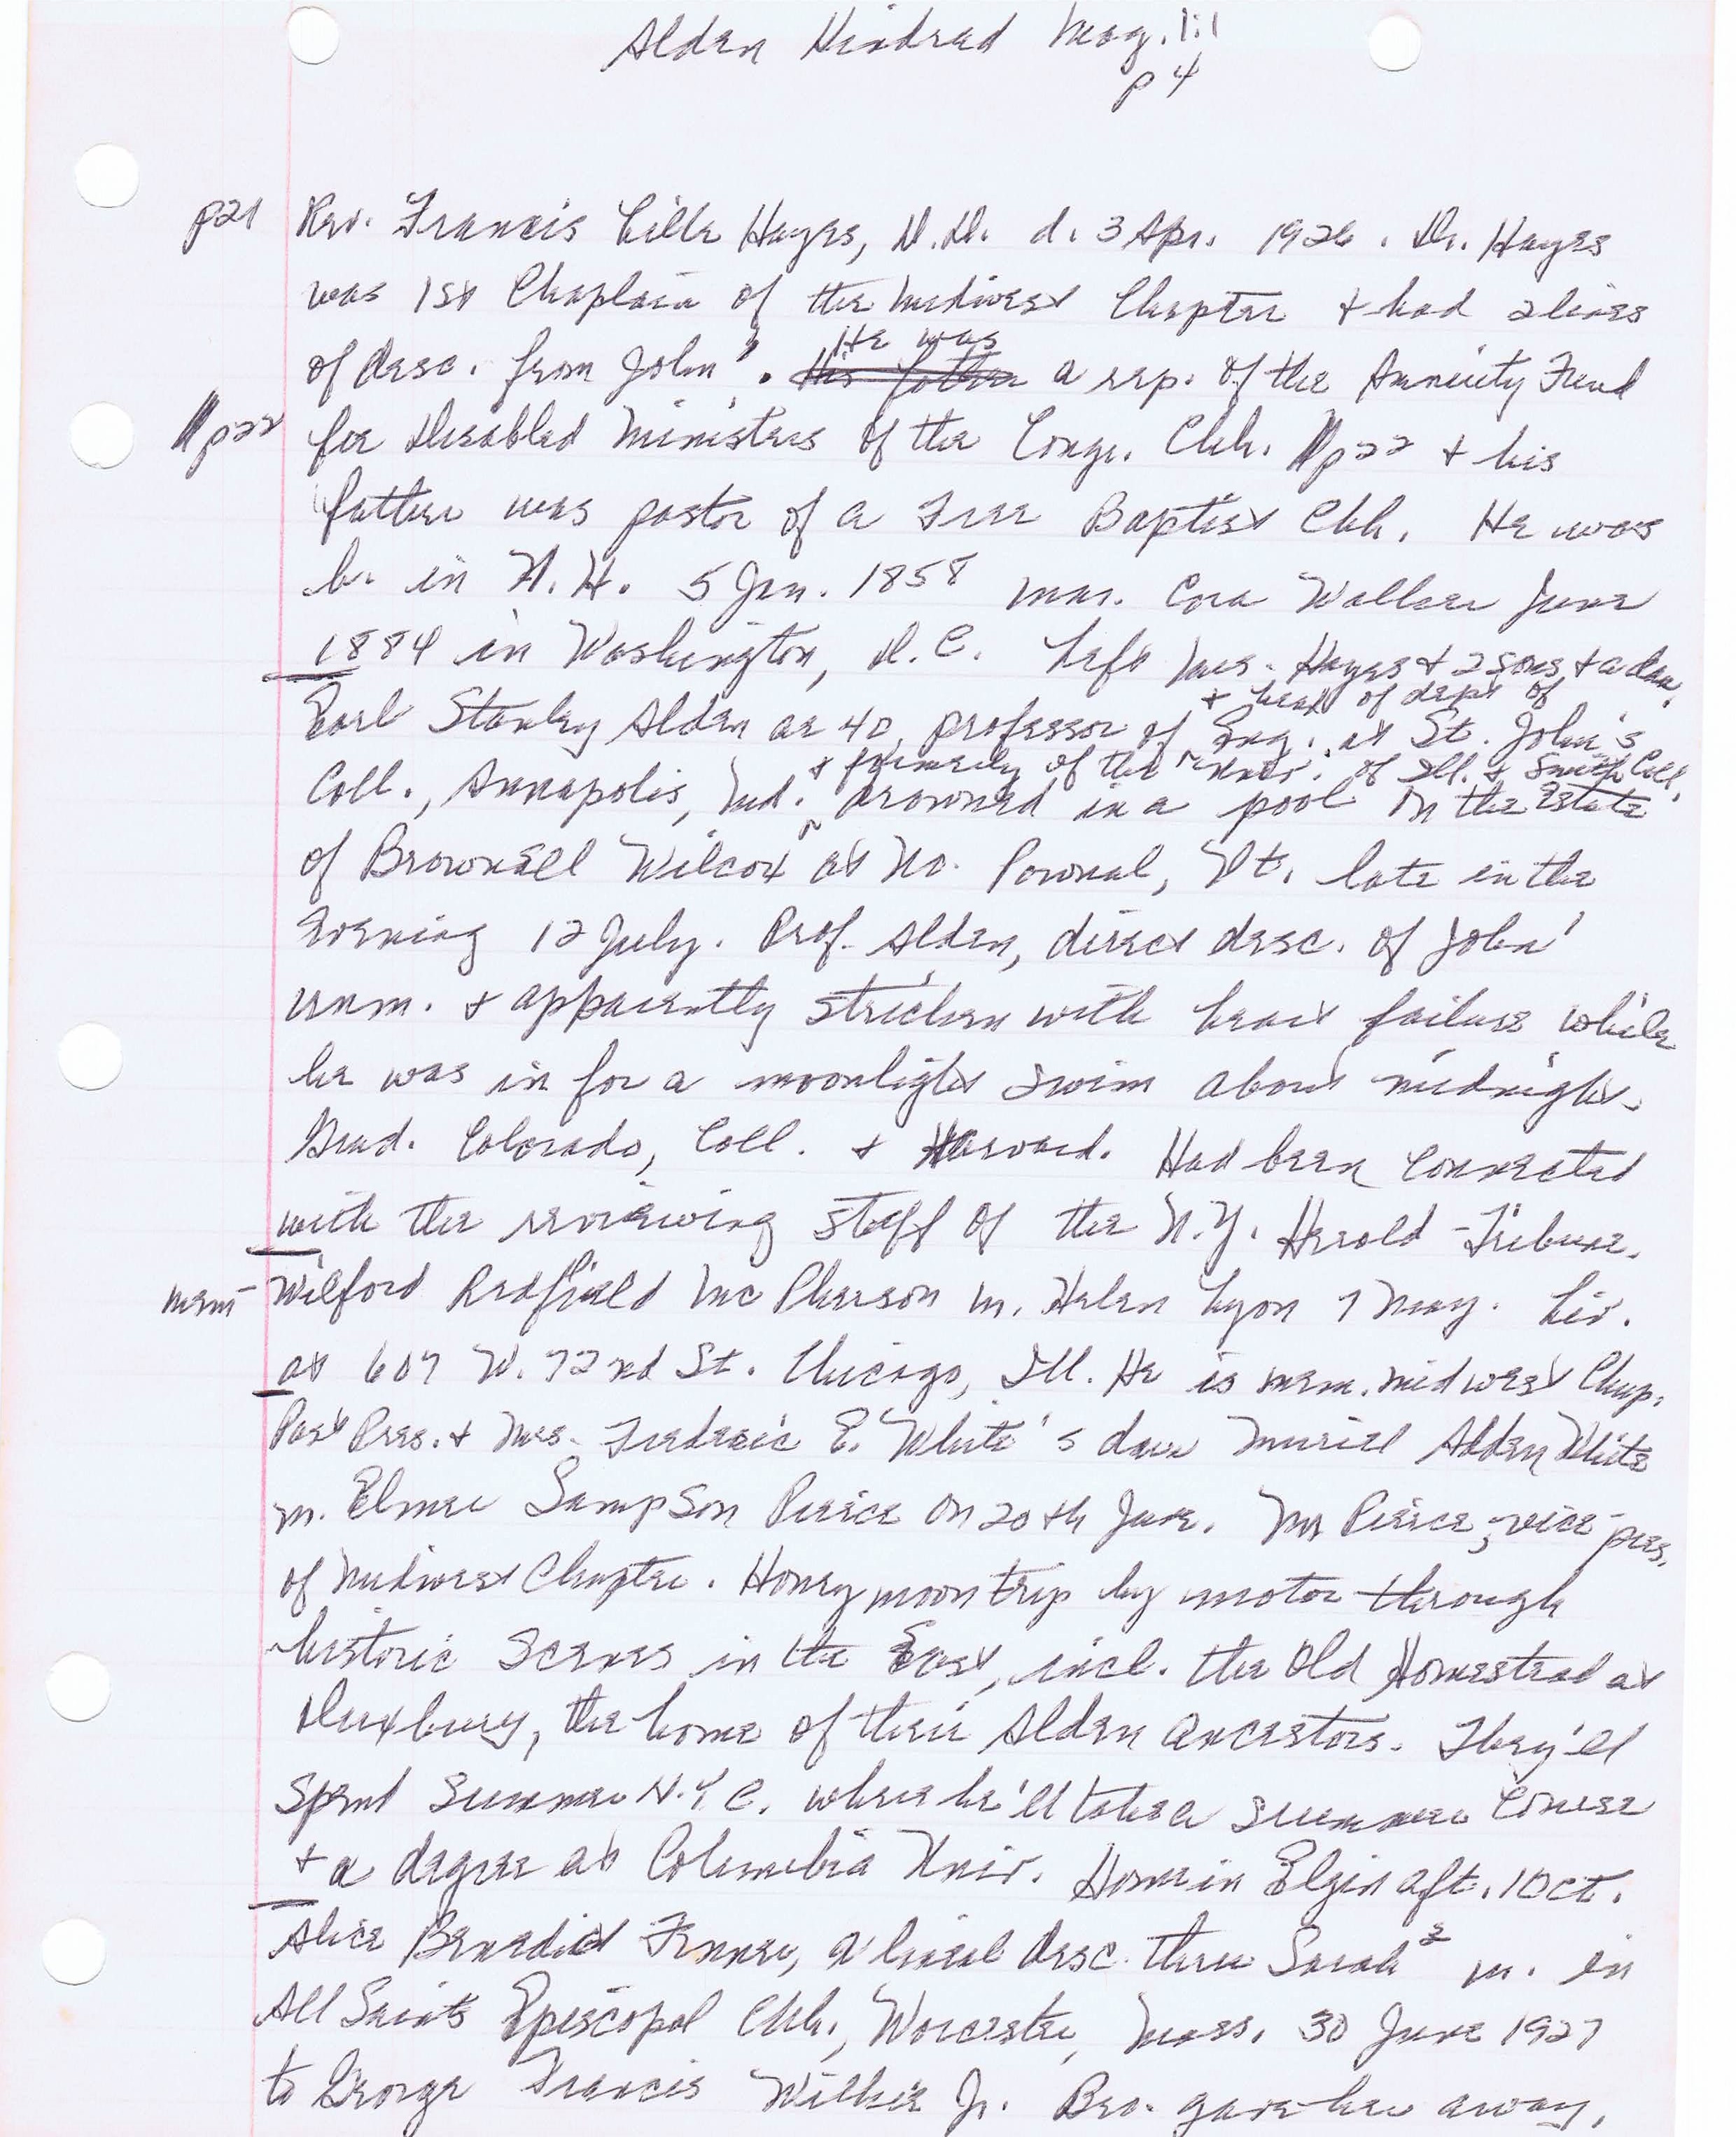 Alden Kindred Mag. 1:1
p 4
p21 Rev. Francis Little Hayes, D.D. d. 3 Apr. 1926. Dr. Hayes
was 1st Chaplain of the Midwest Chapter + had 2 lines
of desc. from John¹. He was ~~His father~~ a rep. of the Annuity Fund
||p22 for Disabled Ministers of the Cong. Chh. ||p22 + his
father was pastor of a Free Baptist Chh. He was
b. in N.H. 5 Jan. 1858 mar. Cora Walker June
1884 in Washington, D.C. Left Mrs. Hayes + 2 sons + a dau.
Earl Stanley Alden ae 40, professor of + head of dept of Eng. at St. John's
Coll., Annapolis, Md. + formerly of the Univ. of Ill. + Smith Coll. drowned in a pool on the Estate
of Brownell Wilcox at No. Pownal, Vt. late in the
Evening 12 July. Prof. Alden, direct desc. of John¹
unm. + apparently stricken with heart failure while
he was in for a moonlight swim about midnight.
Grad. Colorado, Coll. + Harvard. Had been connected
with the reviewing staff of the N.Y. Herold-Tribune.
mem Wilford Redfield McPherson m. Helen Lyon 7 May. Liv.
at 607 W. 72nd St. Chicago, Ill. He is mem. Midwest Chap.
Past Pres. + Mrs. Frederic E. White's dau Muriel Alden White
m. Elmer Sampson Pierce on 20th June. Mr Pierce, vice-pres.
of Midwest Chapter. Honeymoon trip by motor through
historic scenes in the East, incl. the Old Homestead at
Duxbury, the home of their Alden ancestors. They'll
spend summer N.Y.C. where he'll take a summer course
+ a degree at Columbia Univ. Home in Elgin aft. 1 Oct.
Alice Benedict Fenner, a lineal desc. thru Sarah² m. in
All Saints Episcopal Chh., Worcester, Mass. 30 June 1927
to George Francis Willie Jr. Bro. gave her away,